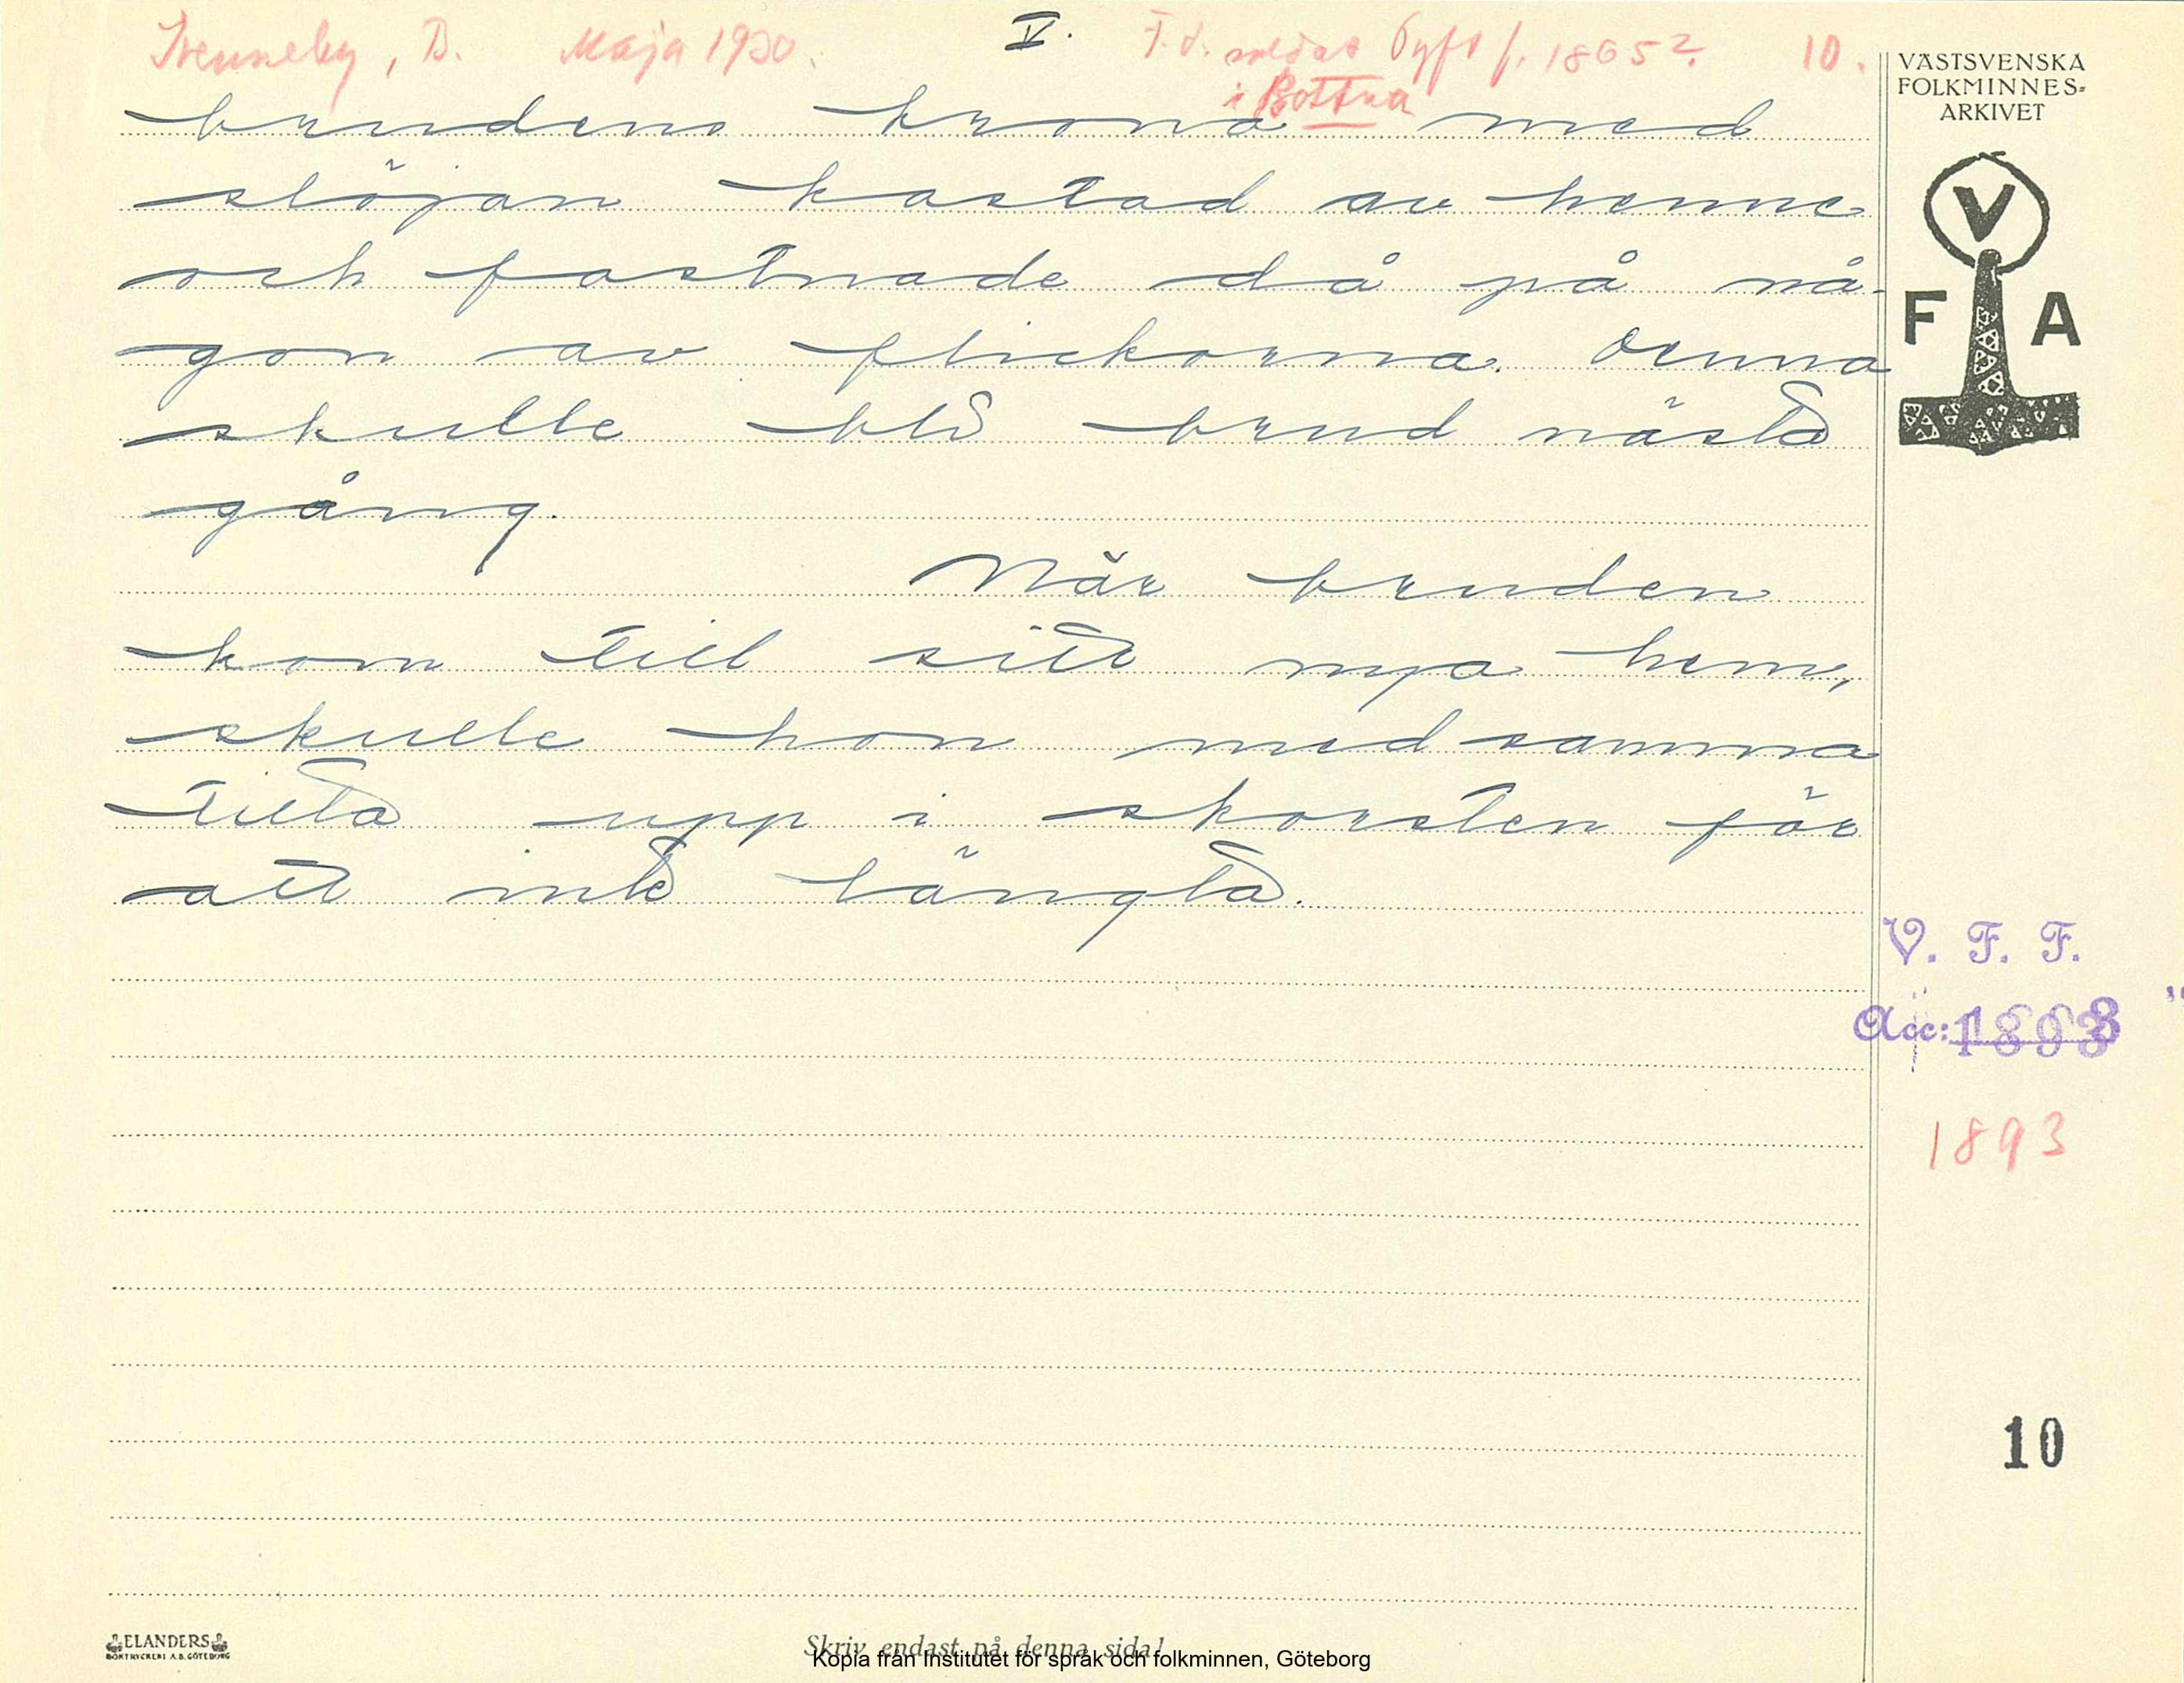 Svenneby, B. Maja 1920. V. F. d. soldat Gyft f. 1865? 10.
i Bottna
brudens krona med
slöjan kastad av henne
och fastnade då på nå-
gon av flickorna. Denna
skulle bli brud nästa
gång.
När bruden
kom till sitt nya hem,
skulle hon medsamma
titta upp i skorsten för
att inte längta.
VÄSTSVENSKA
FOLKMINNES=
ARKIVET
V
F A
V. F. F.
Acc: 1893
1893
10
ELANDERS
BOKTRYCKERI A.B. GÖTEBORG
Skriv endast på denna sida!
Kopia från Institutet för språk och folkminnen, Göteborg